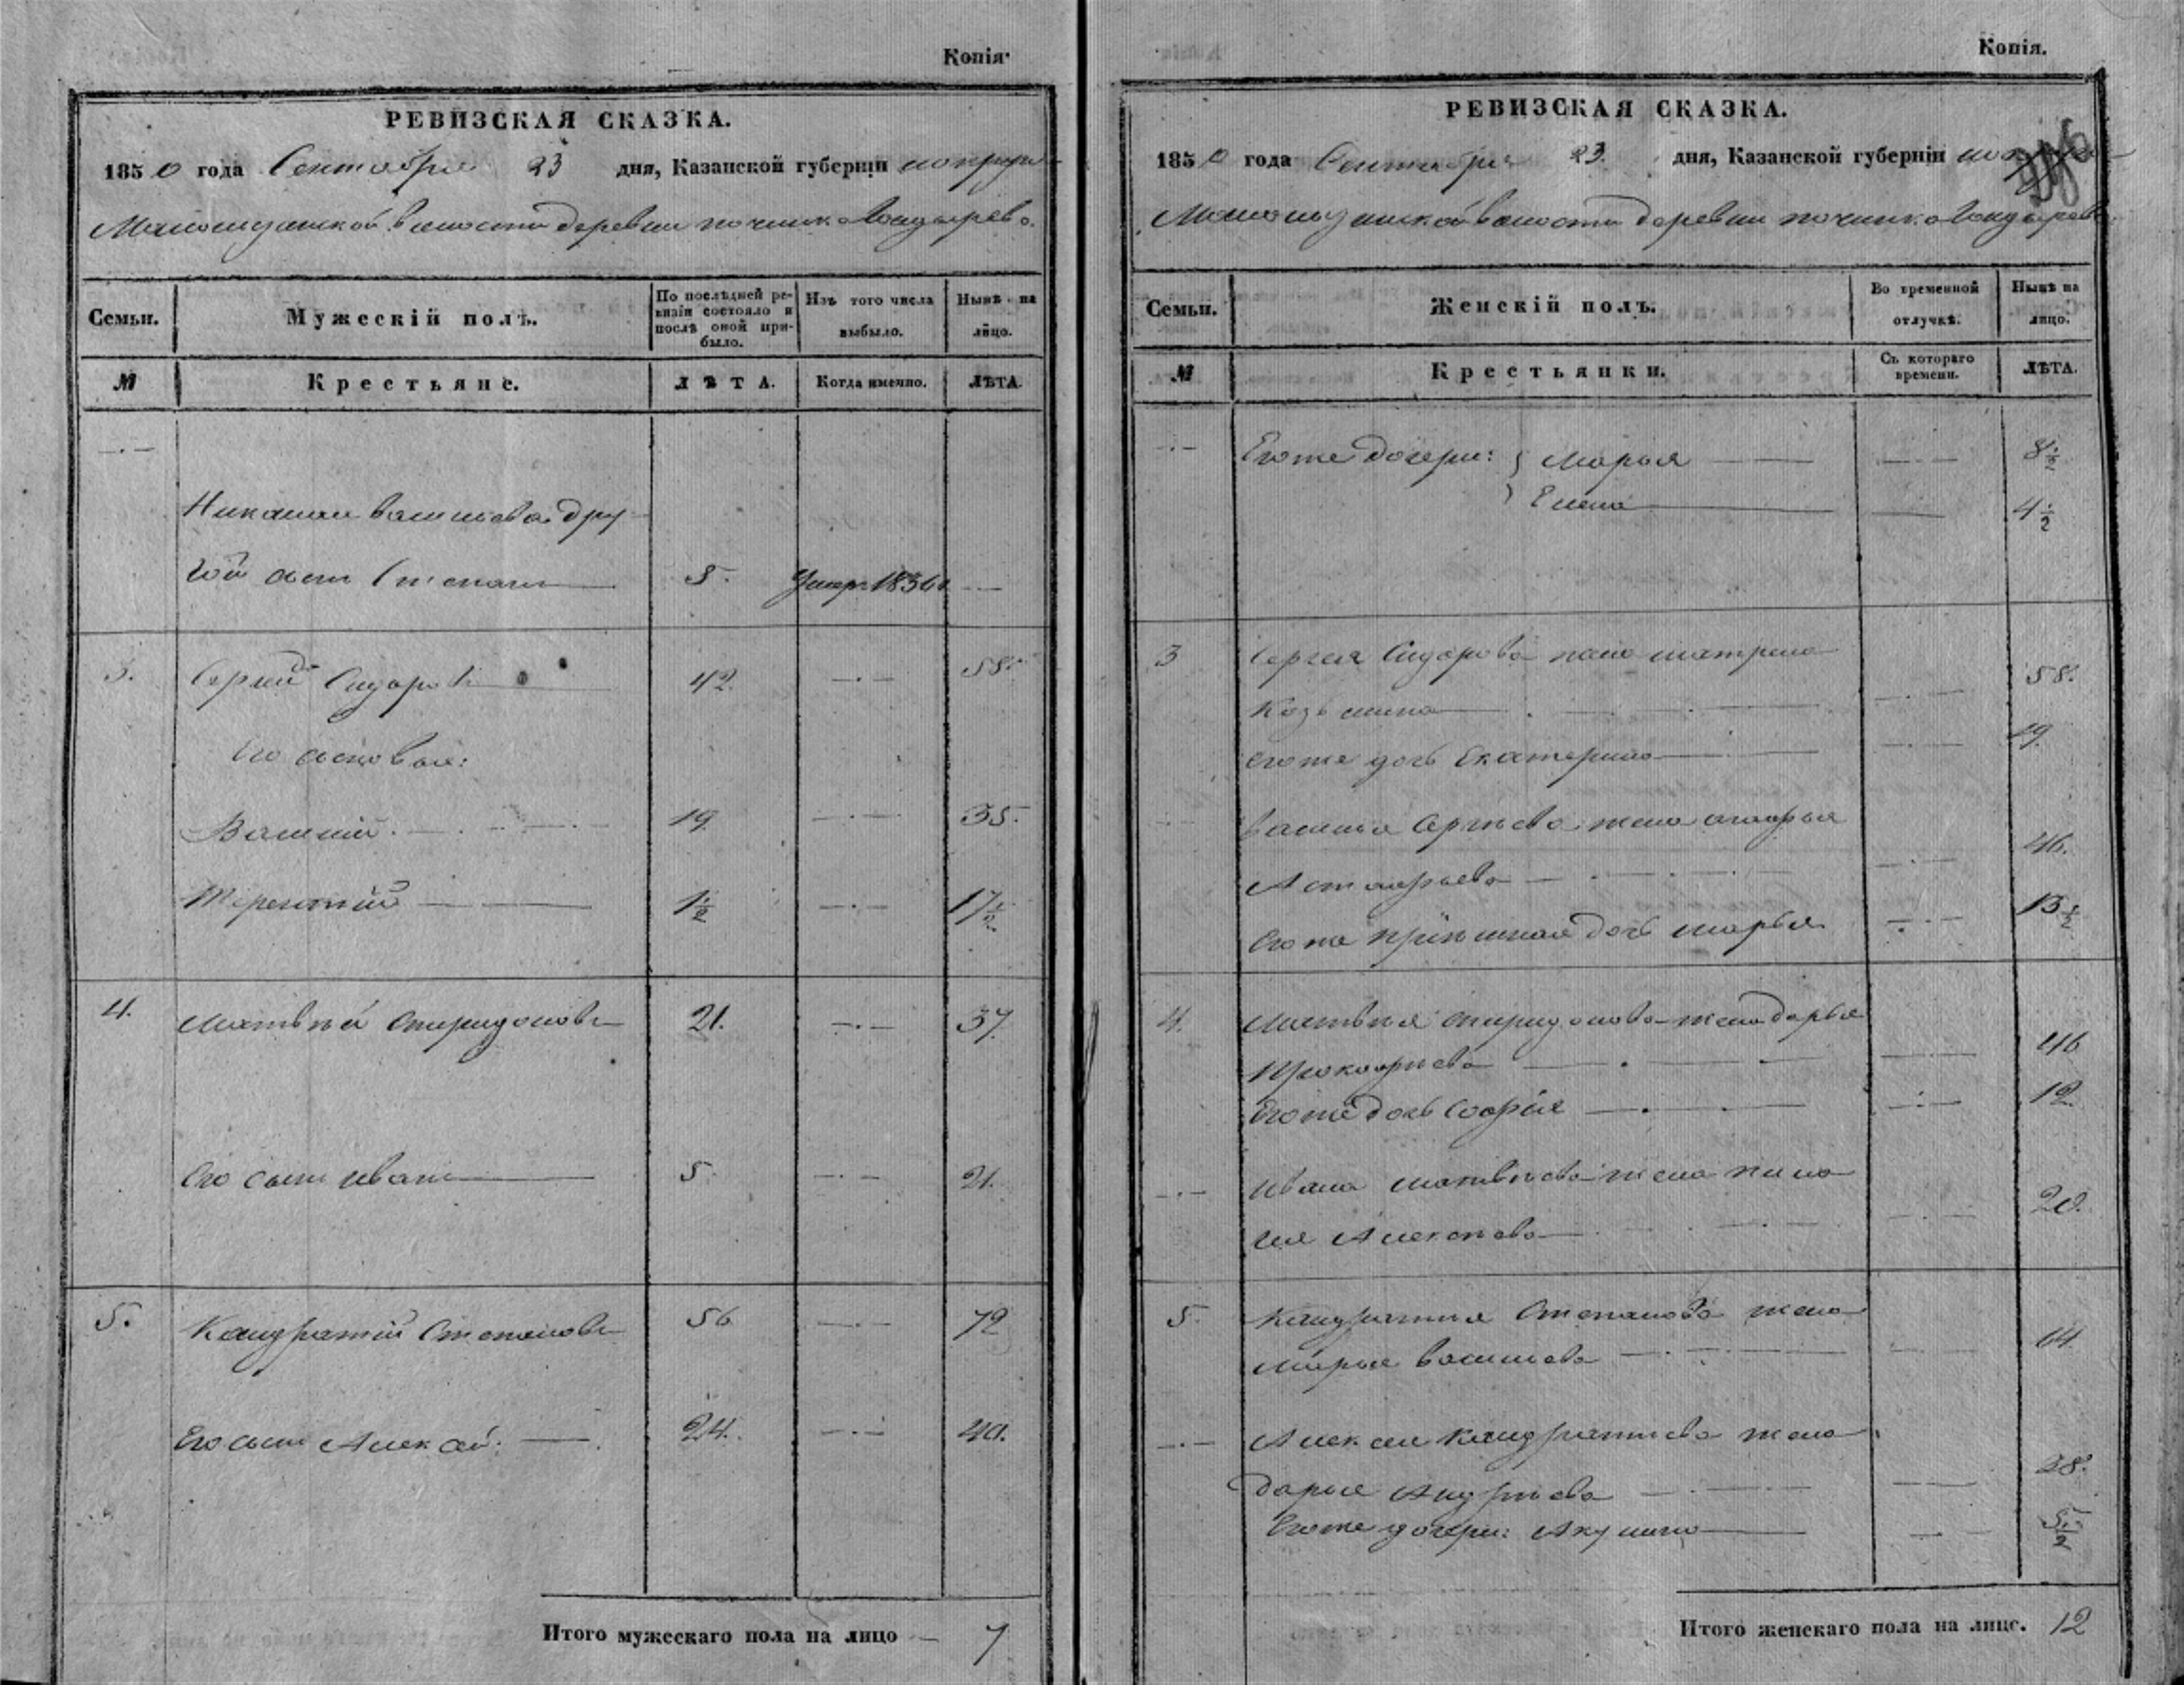 Копія.
РЕВИЗСКАЯ СКАЗКА.
1850 года Сентября 23 дня, Казанской губерніи
волости деревни починка
Семьи.
Мужескій полъ.
По послѣдней ревизіи состояло и послѣ оной прибыло.
Изъ того числа выбыло.
Нынѣ на лицо.
№
Крестьяне.
ЛѢТА.
Когда именно.
ЛѢТА.
Васильева дру-
гой сынъ Степанъ 5.
3. Сергій Сидоровъ 42. 58.
Его сыновья:
Василій 19. 35.
Терентій 1 1/2 17 1/2
4. Матвѣй Спиридоновъ 21. 37.
Его сынъ Иванъ 5. 21.
5. Кандратій Степановъ 56 72
Его сынъ Алексѣй: 24. 40.
Итого мужескаго пола на лицо 7
Копія.
РЕВИЗСКАЯ СКАЗКА.
1850 года Сентября 23. дня, Казанской губерніи
волости деревни починка
Семьи.
Женскій полъ.
Во временной отлучкѣ.
Нынѣ на лицо.
№
Крестьянки.
Съ котораго времени.
ЛѢТА.
Его же дочери: Марья 8 1/2
Елена 4 1/2
3 Сергея Сидорова жена Матрена
Козьмина 58.
Его же дочь Екатерина 19.
Василья Сергѣева жена
46.
Его же дочь Марья 13 1/2
4. Матвѣя Спиридонова жена Дарья
Прокофьева 46
Его же дочь Софія 12
Ивана Матвѣева жена Пела-
гея Алексѣева 20.
5. Кандратия Степанова жена
Марья Васильева 64
Алексея Кандратиева жена
Дарья Андрѣева 38.
Его же дочери: Акулина 5 1/2
Итого женскаго пола на лицо. 12